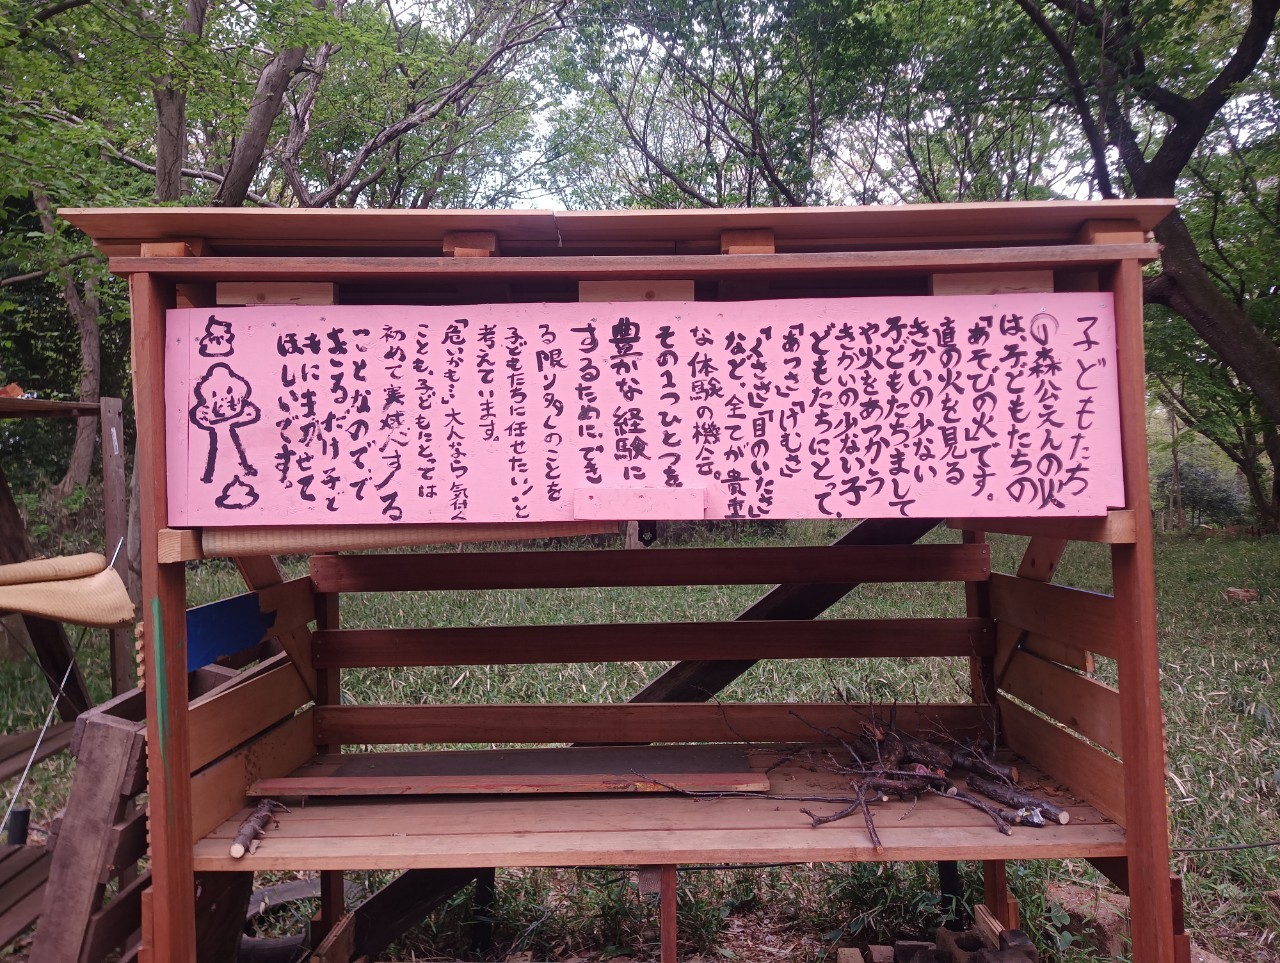 子どもたち
森公えんの火
は、子どもたちの
「あそびの火」です。
直の火を見る
きかいの少ない
子どもたち、まして
や火をあつかう
きかいの少ない子
どもたちにとって、
「あつさ」「けむさ」
「くささ」「目のいたさ」
など、全てが貴重
な体験の機会。
その1つひとつを
豊かな経験に
するために、でき
る限り多くのことを
子どもたちに任せたい!と
考えています。
「危いかも…」大人なら気付く
ことも、子どもにとっては
初めて実感する
ことなので、で
きるだけ子ど
もにまかせて
ほしいです。